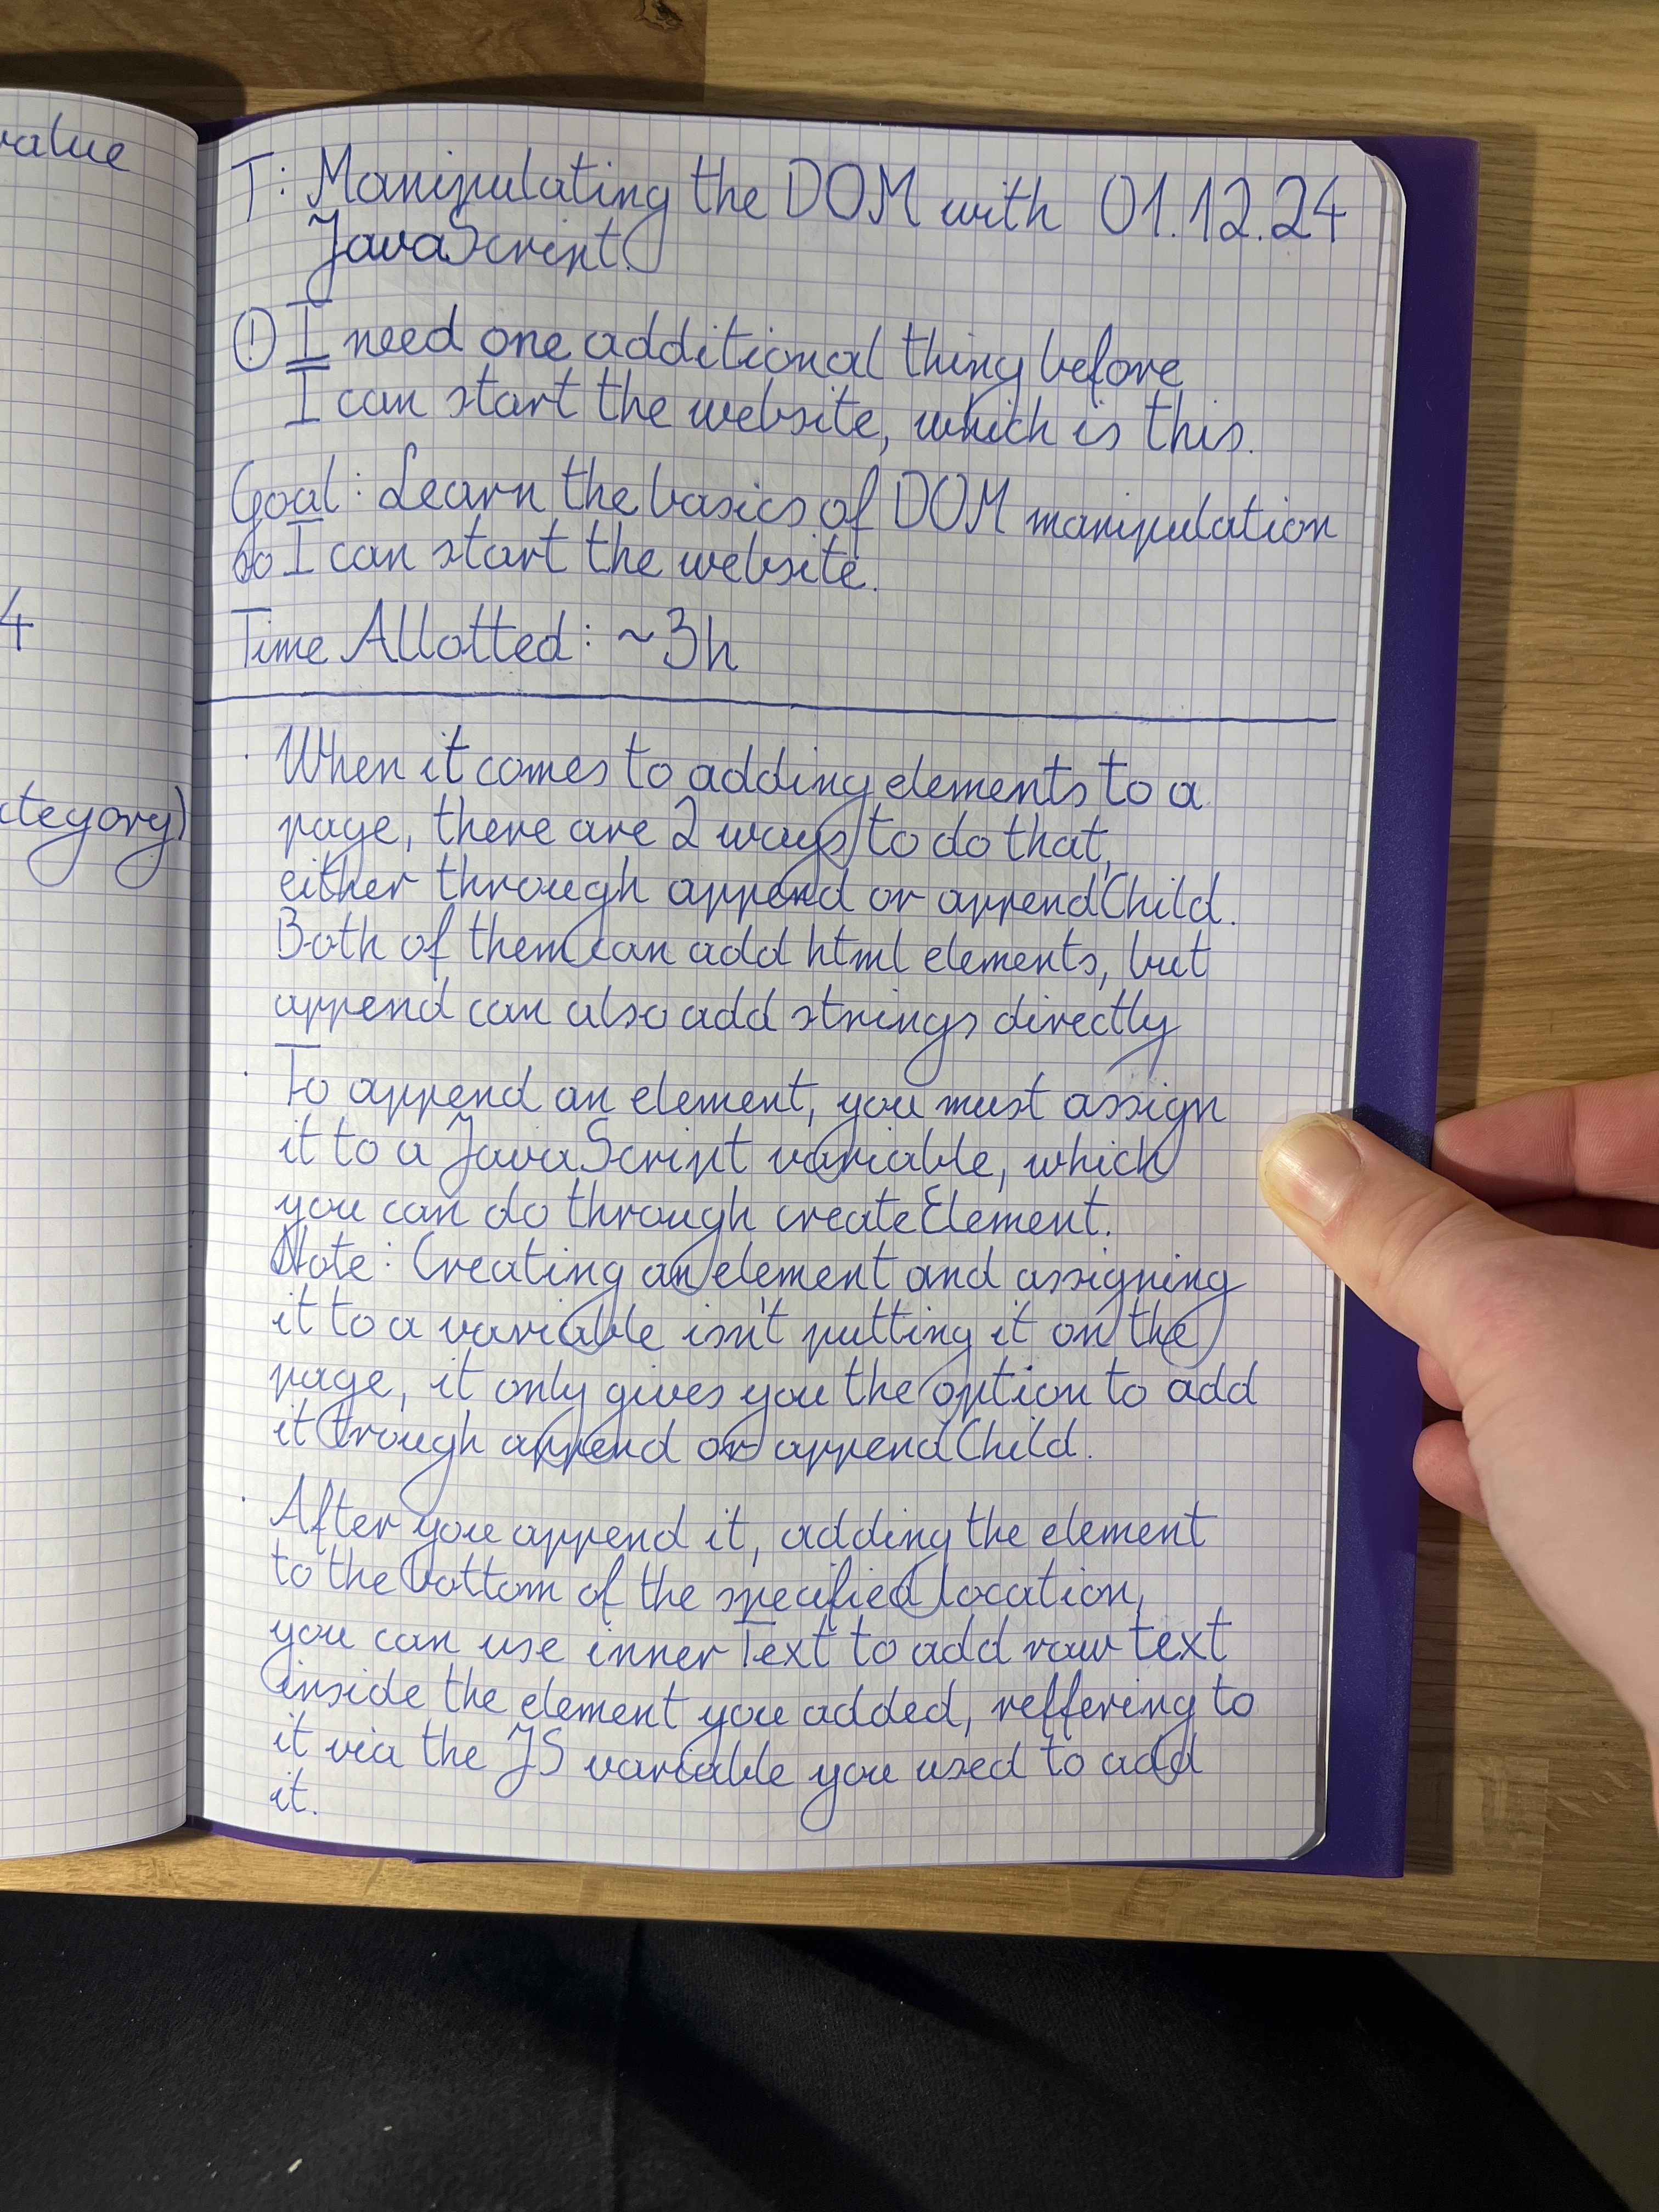 value
4
ategory)
T: Manipulating the DOM with 01.12.24
JavaScript.
! I need one additional thing before
I can start the website, which is this.
Goal: Learn the basics of DOM manipulation
so I can start the website.
Time Allotted: ~3h
· When it comes to adding elements to a
page, there are 2 ways to do that,
either through append or appendChild.
Both of them can add html elements, but
append can also add strings directly
· To append an element, you must assign
it to a JavaScript variable, which
you can do through createElement.
Note: Creating an element and assigning
it to a variable isn't putting it on the
page, it only gives you the option to add
it trough append or appendChild.
· After you append it, adding the element
to the bottom of the specified location,
you can use innerText to add raw text
inside the element you added, reffering to
it via the JS variable you used to add
it.